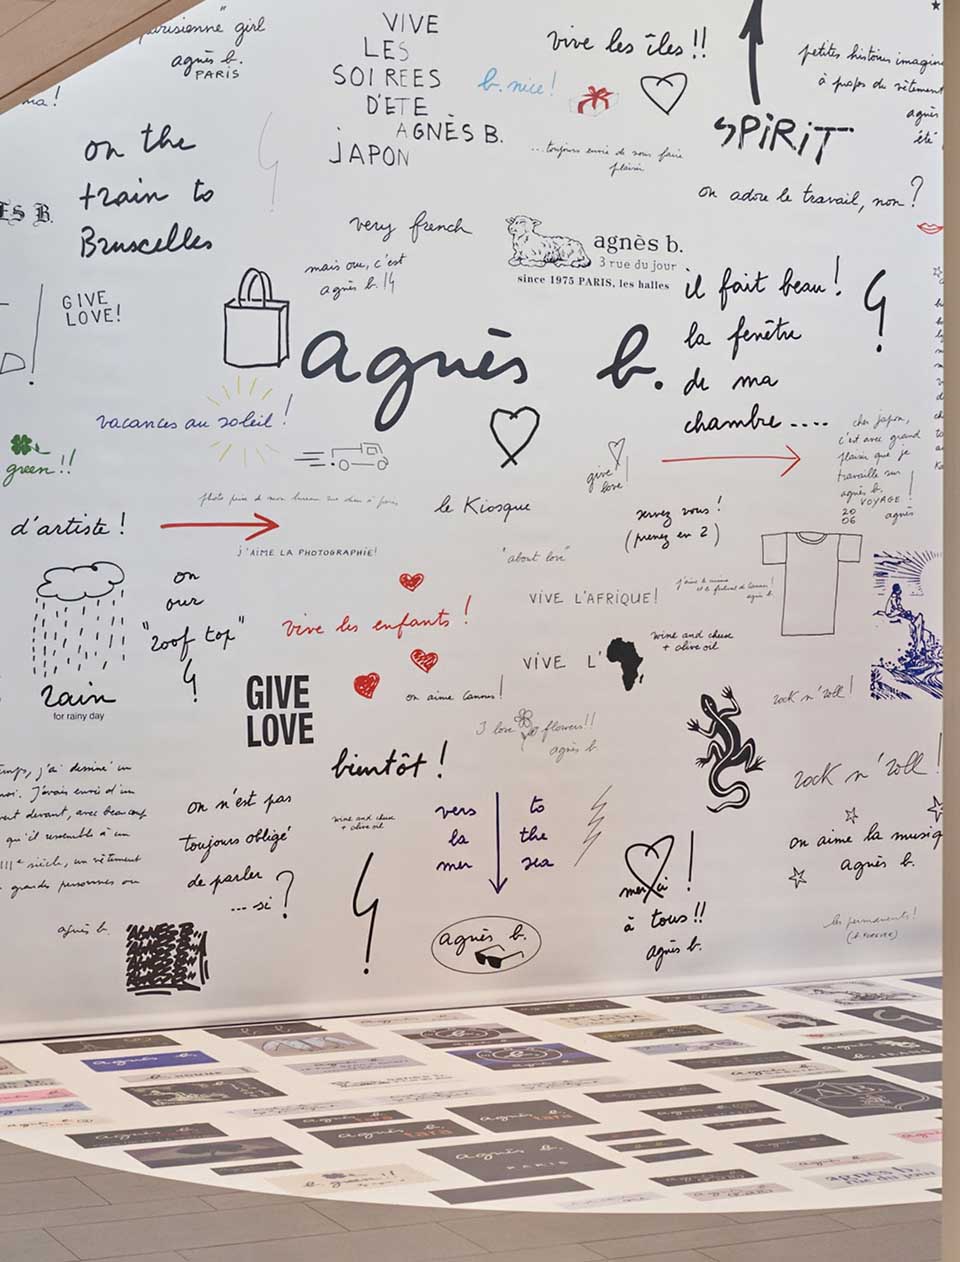 parisienne" girl
agnès b.
PARIS
VIVE
LES
SOIREES
D'ETE
AGNÈS B.
JAPON
b. nice!
vive les îles!!
...toujours envie de vous faire
plaisir
SPiRiT
petites histoires
à propos du vêtement
agnès
été
on adore le travail, non?
on the
train to
Bruxelles
ES B.
very french
mais oui, c'est
agnès b.!
agnès b.
3 rue du jour
since 1975 PARIS, les halles
GIVE
LOVE!
agnès b.
il fait beau!
la fenêtre
de ma
chambre....
vacances au soleil!
green!!
give
love!
cher japon,
c'est avec grand
plaisir que je
travaille sur
agnès b.
VOYAGE!
20
06
agnès
d'artiste!
le Kiosque
servez vous!
(prenez en 2)
j'AIME LA PHOTOGRAPHIE!
"about love"
VIVE L'AFRIQUE!
on
our
"roof top"
vive les enfants!
VIVE L'
wine and cheese
+ olive oil
rain
for rainy day
GIVE
LOVE
on aime Cannes!
rock n' roll!
I love flowers!!
agnès b
bientôt!
rock n' roll!
temps, j'ai dessiné un
moi. J'avais envie d'un
devant, avec beaucoup
qu'il ressemble à un
siècle, un vêtement
grandes personnes ou
agnès b.
on n'est pas
toujours obligé
de parler
... si?
wine and cheese
+ olive oil
vers
la
mer
to
the
sea
on aime la musiq
agnès b.
merci!
à tous!!
agnès b.
les permanents!
AGNES B.
AGNES B.
AGNES B.
AGNES B.
agnès b.
agnès b.
b. HOMME
agnès b.
tara
agnès b.
tara
agnès b.
PARIS
b. green!!
agnès b.
rue du jour